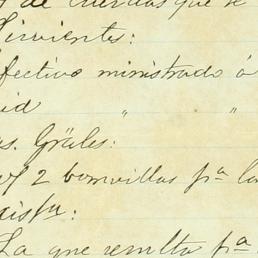 de cuerdas que se
Sirvientes:
fectivo ministrado á
id " "
s. Gräles:
2 bomvillas pª la
La que resulta pª